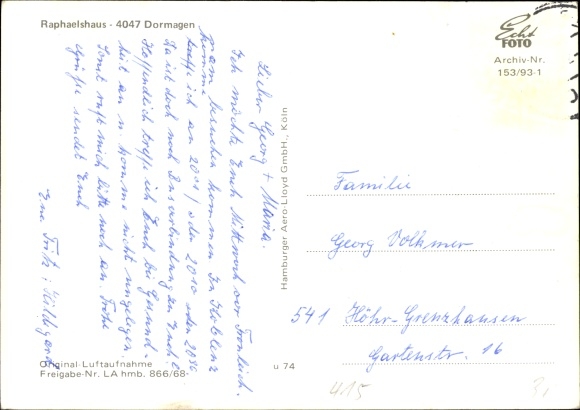 Raphaelshaus - 4047 Dormagen
Echt
FOTO
Archiv-Nr.
153/93-1
Lieber Georg + Maria.
Ich möchte Euch Mittwoch vor Fronleich.
nam besuchen kommen In Koblenz
komme
treffe ich an 2001/ oder 2010 oder 2036
Da ist doch noch Busverbindung zu Euch?
Hoffendlich treffe ich Euch bei Gesund-
heit an u. komme nicht ungelegen.
Sonst ruft mich bitte noch an. Frohe
Grüße sendet Euch
Ene Fritz; Hildegard
Hamburger Aero-Lloyd GmbH., Köln
Familie
Georg Volkmer
541 Höhr-Grenzhausen
Gartenstr. 16
Original-Luftaufnahme
Freigabe-Nr. LA hmb. 866/68-
u 74
415